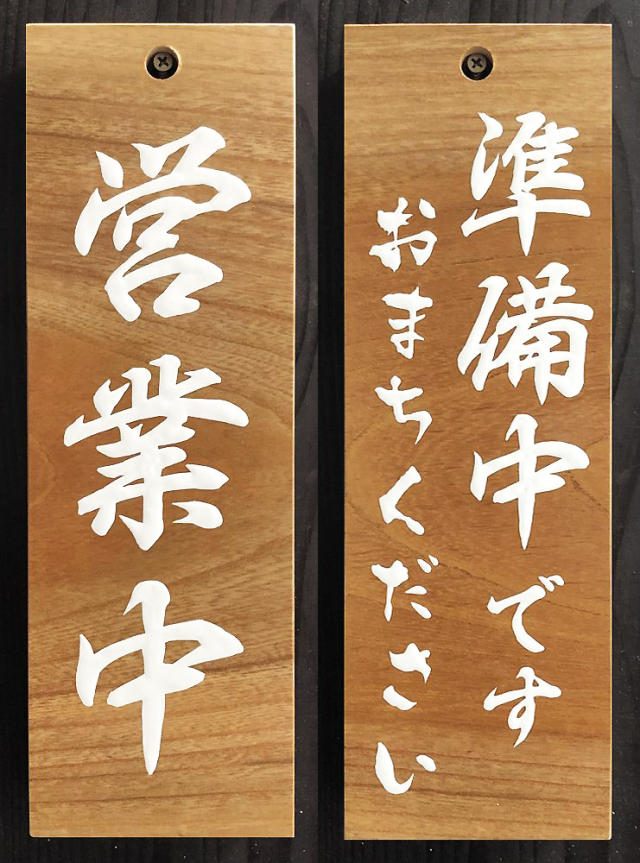 営業中
準備中です
おまちください